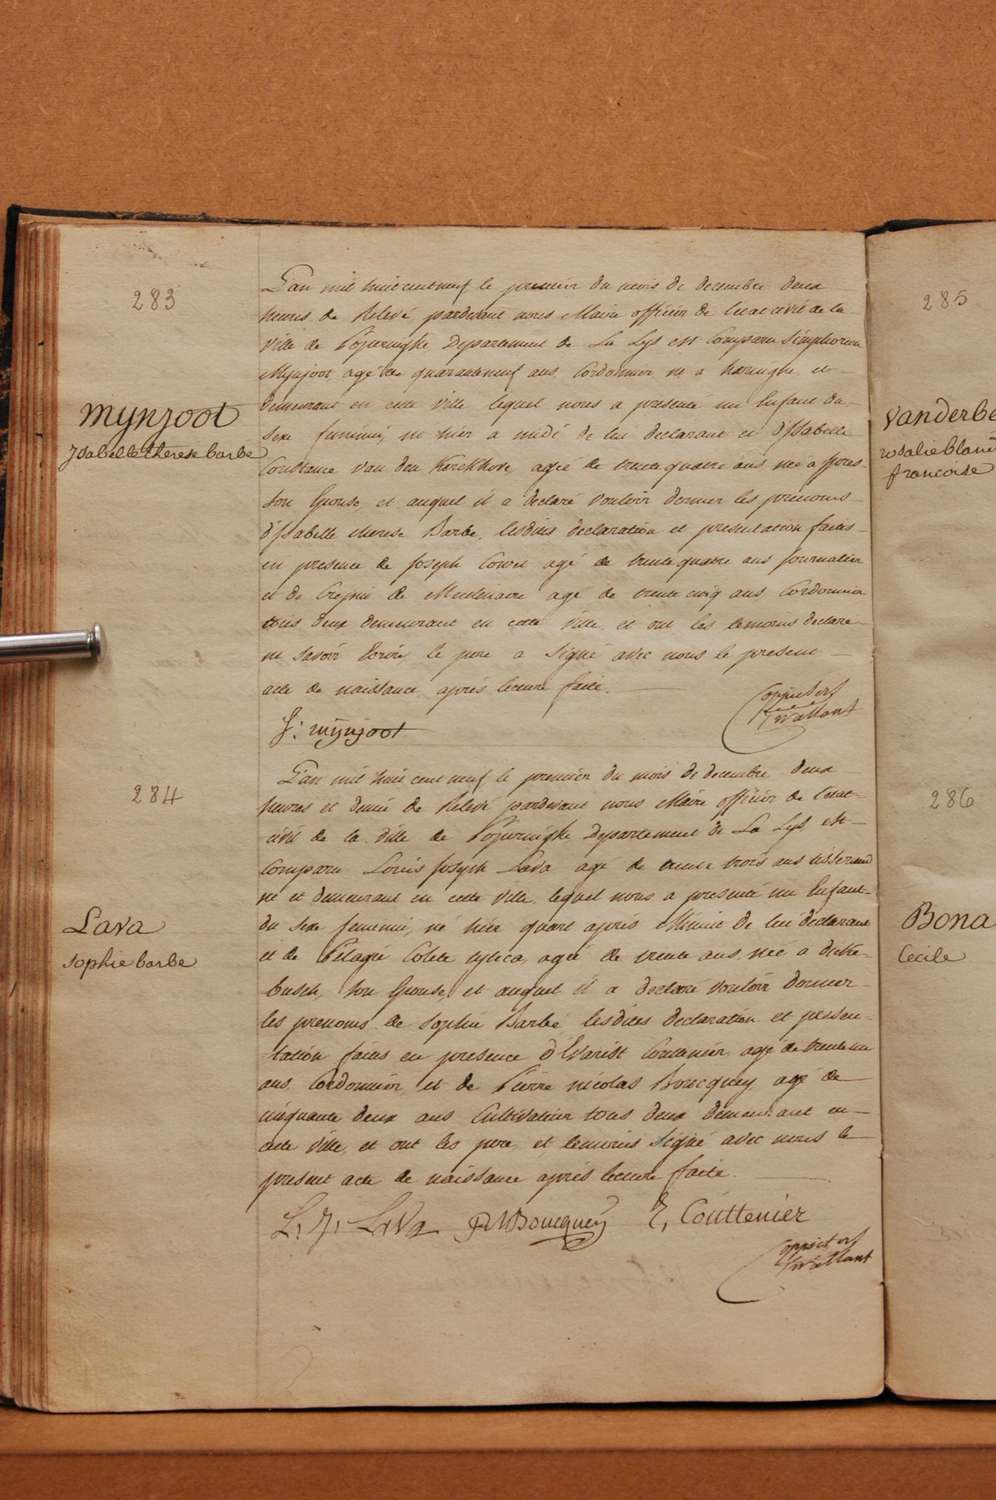 283
Mynjoot
Ysabelle therese barbe
L'an mil huit cent neuf le premier du mois de decembre deux
heures de relevé pardevant nous Maire officier de l'etat civil de la
ville de Poperinghe Departement de La Lys est comparu Simphorien
Mynjoot, agé de quaranteneuf ans Cordonnier né a haringhe et
demeurant en cette ville, lequel nous a presenté un Enfant du
Sexe feminin, né hier a midi de lui declarant et d'Isabelle
Constance Van den Kerckhove agée de trente quatre ans née a Ypres
son Epouse, et auquel il a declaré vouloir donner les prenoms
d'Isabelle therese Barbe, lesdites declaration et presentation faites
en presence de Joseph agé de trente quatre ans Journalier
et de Crepin de Meulenaere agé de trente cinq ans Cordonnier
tous deux demeurant en cette ville, et ont les temoins declaré
ne savoir ecrire, le pere a signé avec nous le present
acte de naissance après lecture faite.
J: mynjoot
284
Lava
Sophie barbe
L'an mil huit cent neuf le premier du mois de decembre deux
heures et demie de relevé pardevant nous Maire officier de l'etat
civil de la ville de Poperinghe Departement de La Lys est
comparu Louis Joseph Lava agé de trente trois ans tisserand
né et demeurant en cette ville, lequel nous a presenté un Enfant
du Sexe feminin, né hier quart après Minuit de lui declarant
et de Pelagie Colete agée de trente ans née a Dicke-
busch, son Epouse, et auquel il a declaré vouloir donner
les prenoms de Sophie Barbe lesdites declaration et presen-
tation faites en presence d'Evarist Couttenier agé de trente un
ans Cordonnier et de Pierre nicolas Boucquey agé de
cinquante deux ans Cultivateur tous deux demeurant en
cette ville, et ont les pere, et temoins signé avec nous le
present acte de naissance après lecture faite.
L, J, LaVa PN Boucquey E, Couttenier
285
Vanderbe
rosalie blan
francoise
286
Bona
Cecile